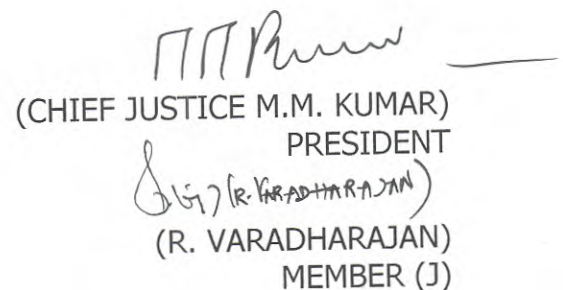 (CHIEF JUSTICE M.M. KUMAR)
PRESIDENT
(R. VARADHARAJAN)
(R. VARADHARAJAN)
MEMBER (J)